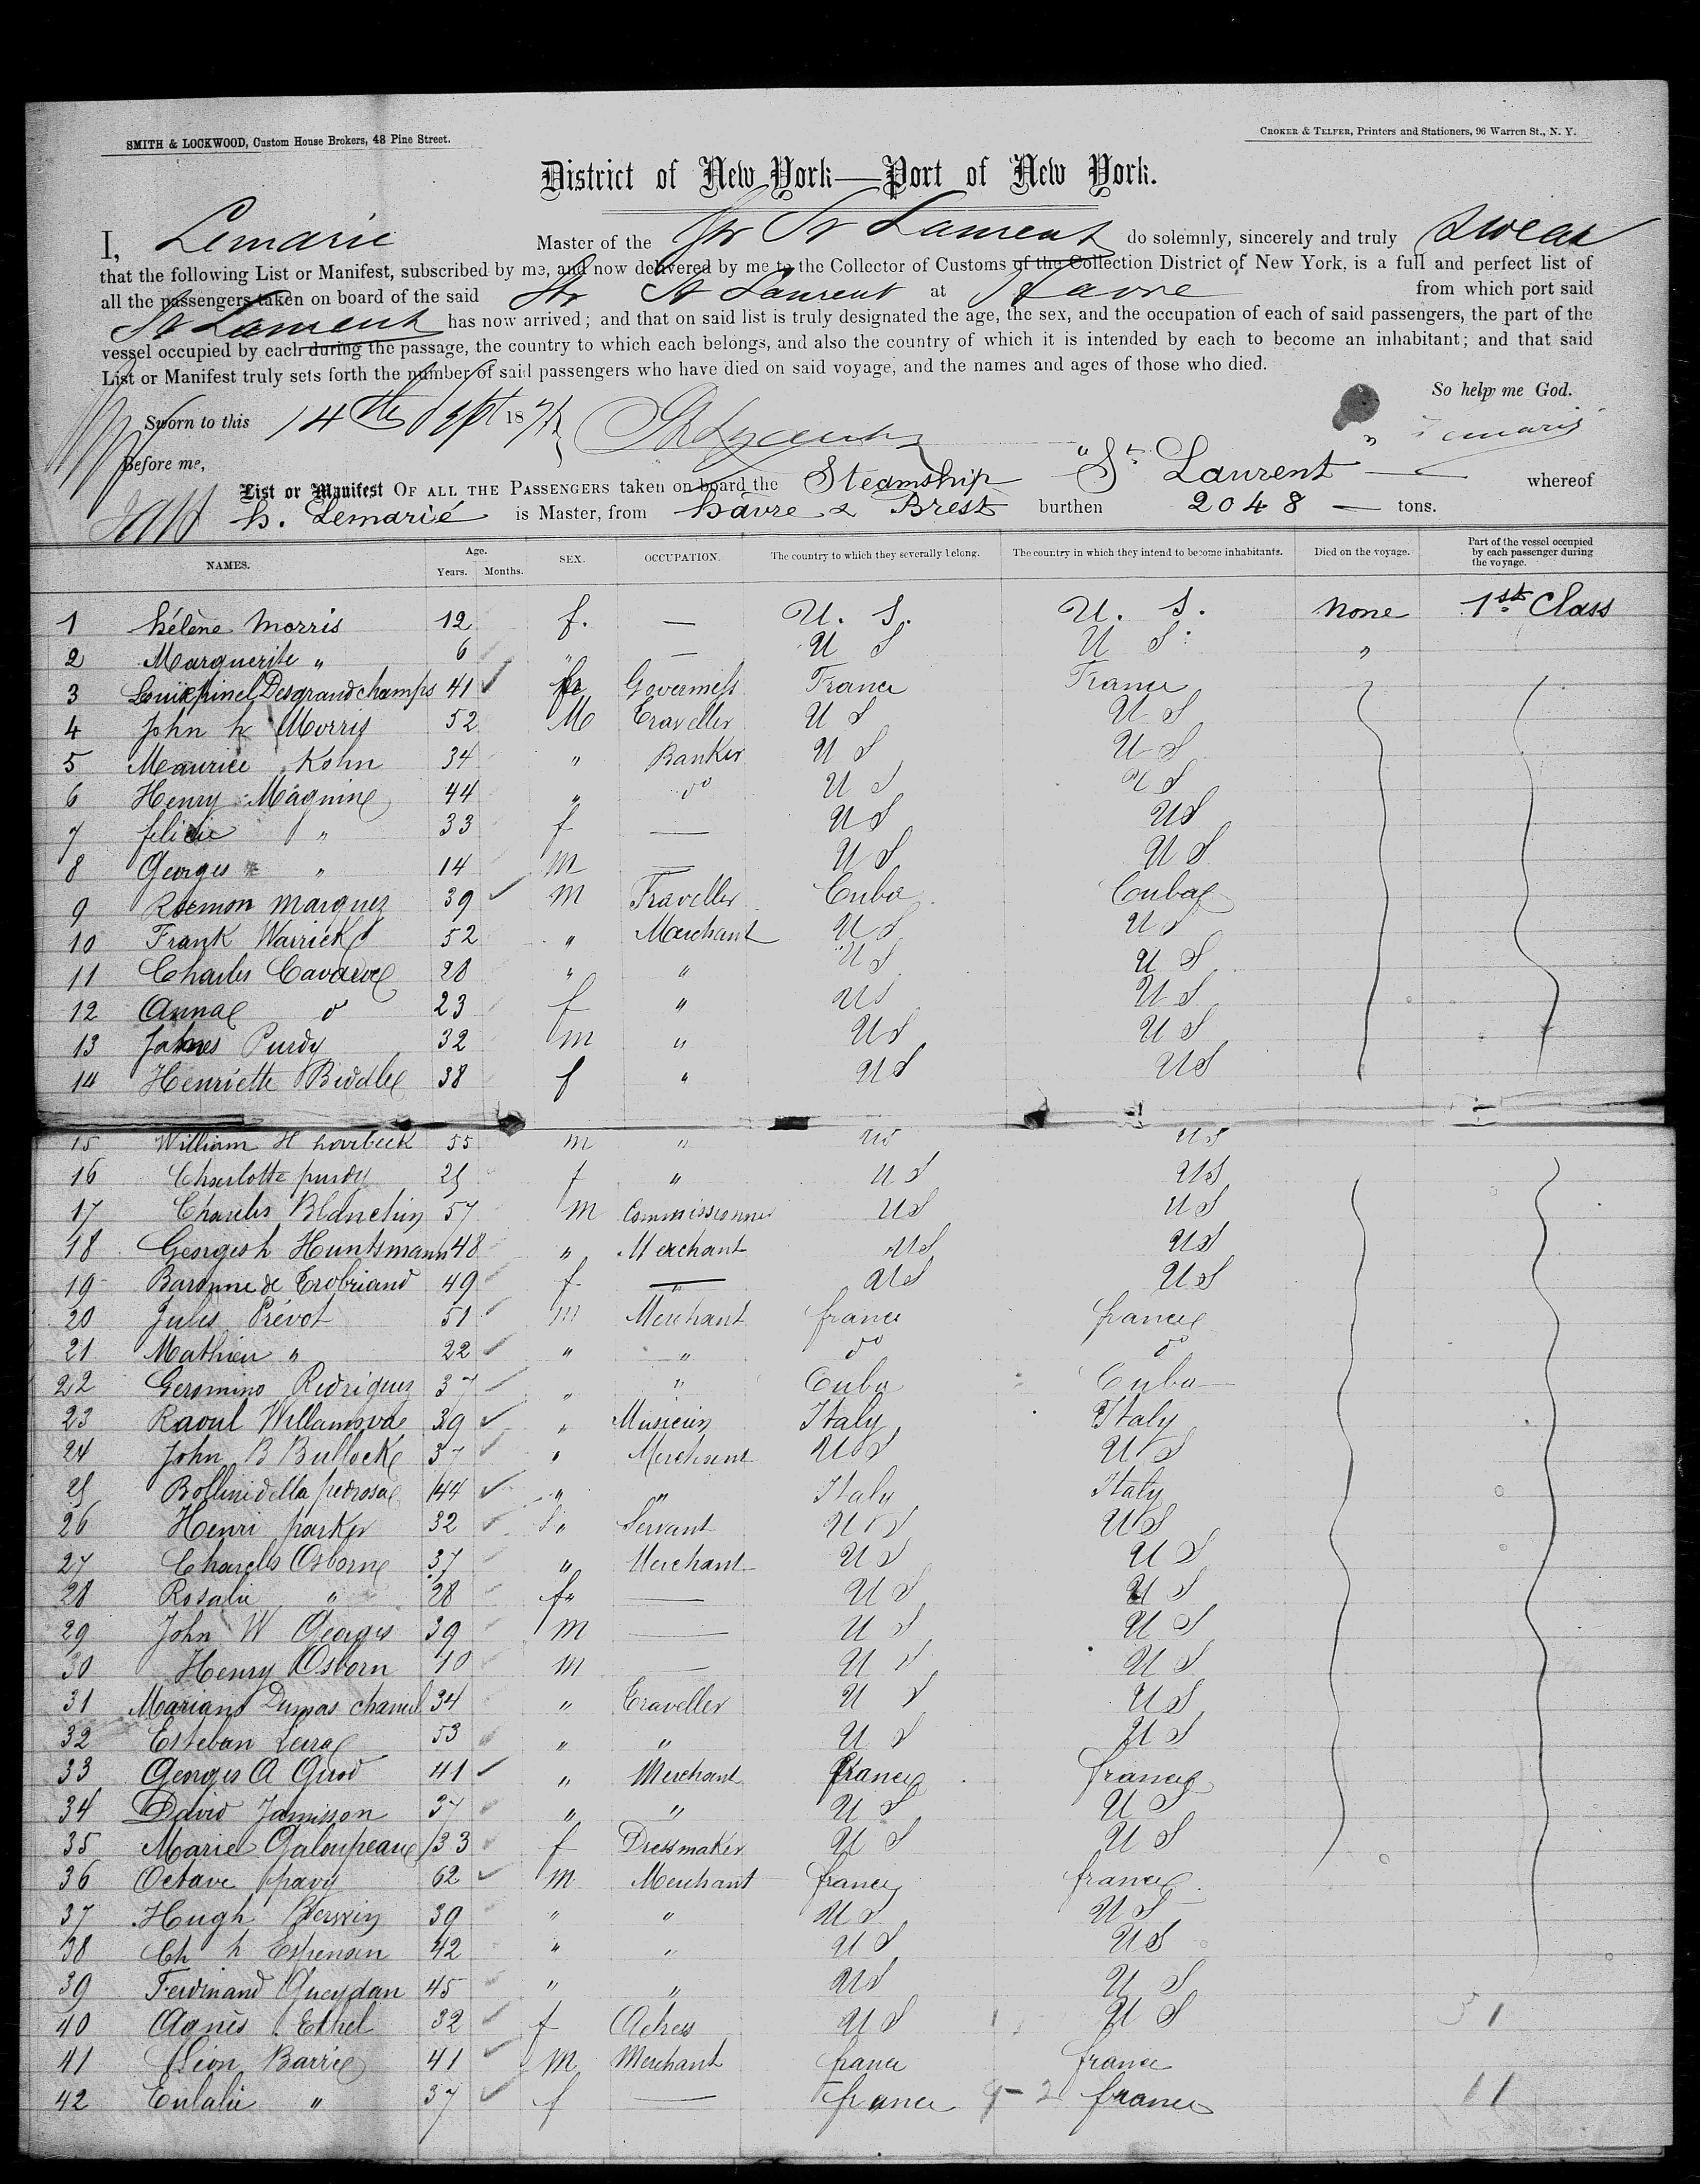 SMITH & LOCKWOOD, Custom House Brokers, 48 Pine Street.
CROKER & TELFER, Printers and Stationers, 96 Warren St., N. Y.
District of New York—Port of New York.
I, Lemarie Master of the Str St Laurent do solemnly, sincerely and truly swear
that the following List or Manifest, subscribed by me, and now delivered by me to the Collector of Customs of the Collection District of New York, is a full and perfect list of
all the passengers taken on board of the said Str St Laurent at Havre from which port said
St Laurent has now arrived; and that on said list is truly designated the age, the sex, and the occupation of each of said passengers, the part of the
vessel occupied by each during the passage, the country to which each belongs, and also the country of which it is intended by each to become an inhabitant; and that said
List or Manifest truly sets forth the number of said passengers who have died on said voyage, and the names and ages of those who died.
So help me God.
Sworn to this 14th Sept 187
Lemarié
Before me,
List or Manifest OF ALL THE PASSENGERS taken on board the Steamship "St Laurent — whereof
h. Lemarié is Master, from havre & Brest burthen 2048 — tons.
NAMES. Age. Years. Months. SEX. OCCUPATION. The country to which they severally belong. The country in which they intend to become inhabitants. Died on the voyage. Part of the vessel occupied by each passenger during the voyage.
1 hélène Morris 12 f. — U. S. U. S. None 1st Class
2 Marguerite " 6 " — U S U S "
3 Desgrandchamps 41 Governess France France
4 John h Morris 52 M Traveller U S U S
5 Maurice Kohn 34 " Banker U S U S
6 Henry 44 " do U S U S
7 felicie " 33 f — U S U S
8 Georges " 14 m — U S U S
9 Marquez 39 M Traveller Cuba Cuba
10 Frank Warrick 52 " Merchant U S U S
11 Charles 28 " " U S U S
12 Anna do 23 f " U S U S
13 James Purdy 32 m " U S U S
14 Henriette Biddle 38 f " U S U S
15 William H 55 m " U S U S
16 Charlotte purdy 25 f " U S U S
17 Charles Blanchin 57 M Commissionner U S U S
18 Georges h Huntsmann 48 " Merchant U S U S
19 Baronne de Trobriand 49 f — U S U S
20 Jules Prévot 51 m Merchant france france
21 Mathieu " 22 " " do do
22 Geromino Rodriguez 37 " " Cuba Cuba
23 Raoul 39 " Musicien Italy Italy
24 John B Bullocke 37 " Merchant U S U S
25 Bollini della pedrosa 44 " " Italy Italy
26 Henri parker 32 " Servant U S U S
27 Charles Osborne 37 " Merchant U S U S
28 Rosalie " 28 f" — U S U S
29 John W Georges 39 m — U S U S
30 Henry Osborn 10 m — U S U S
31 Mariano Dumas 34 " Traveller U S U S
32 Esteban 53 " " U S U S
33 Georges A 41 " Merchant france france
34 David Jamisson 37 " " U S U S
35 Marie Galoupeau 33 f Dressmaker U S U S
36 Octave pavy 62 m Merchant france france
37 Hugh 39 " " U S U S
38 Ch h Espensen 42 " " U S U S
39 Ferdinand Gueydan 45 " " U S U S
40 Agnès Ethel 32 f Actress U S U S 31
41 Léon Barrie 41 M Merchant france france
42 Eulalie " 37 f — france 9-2 france 11